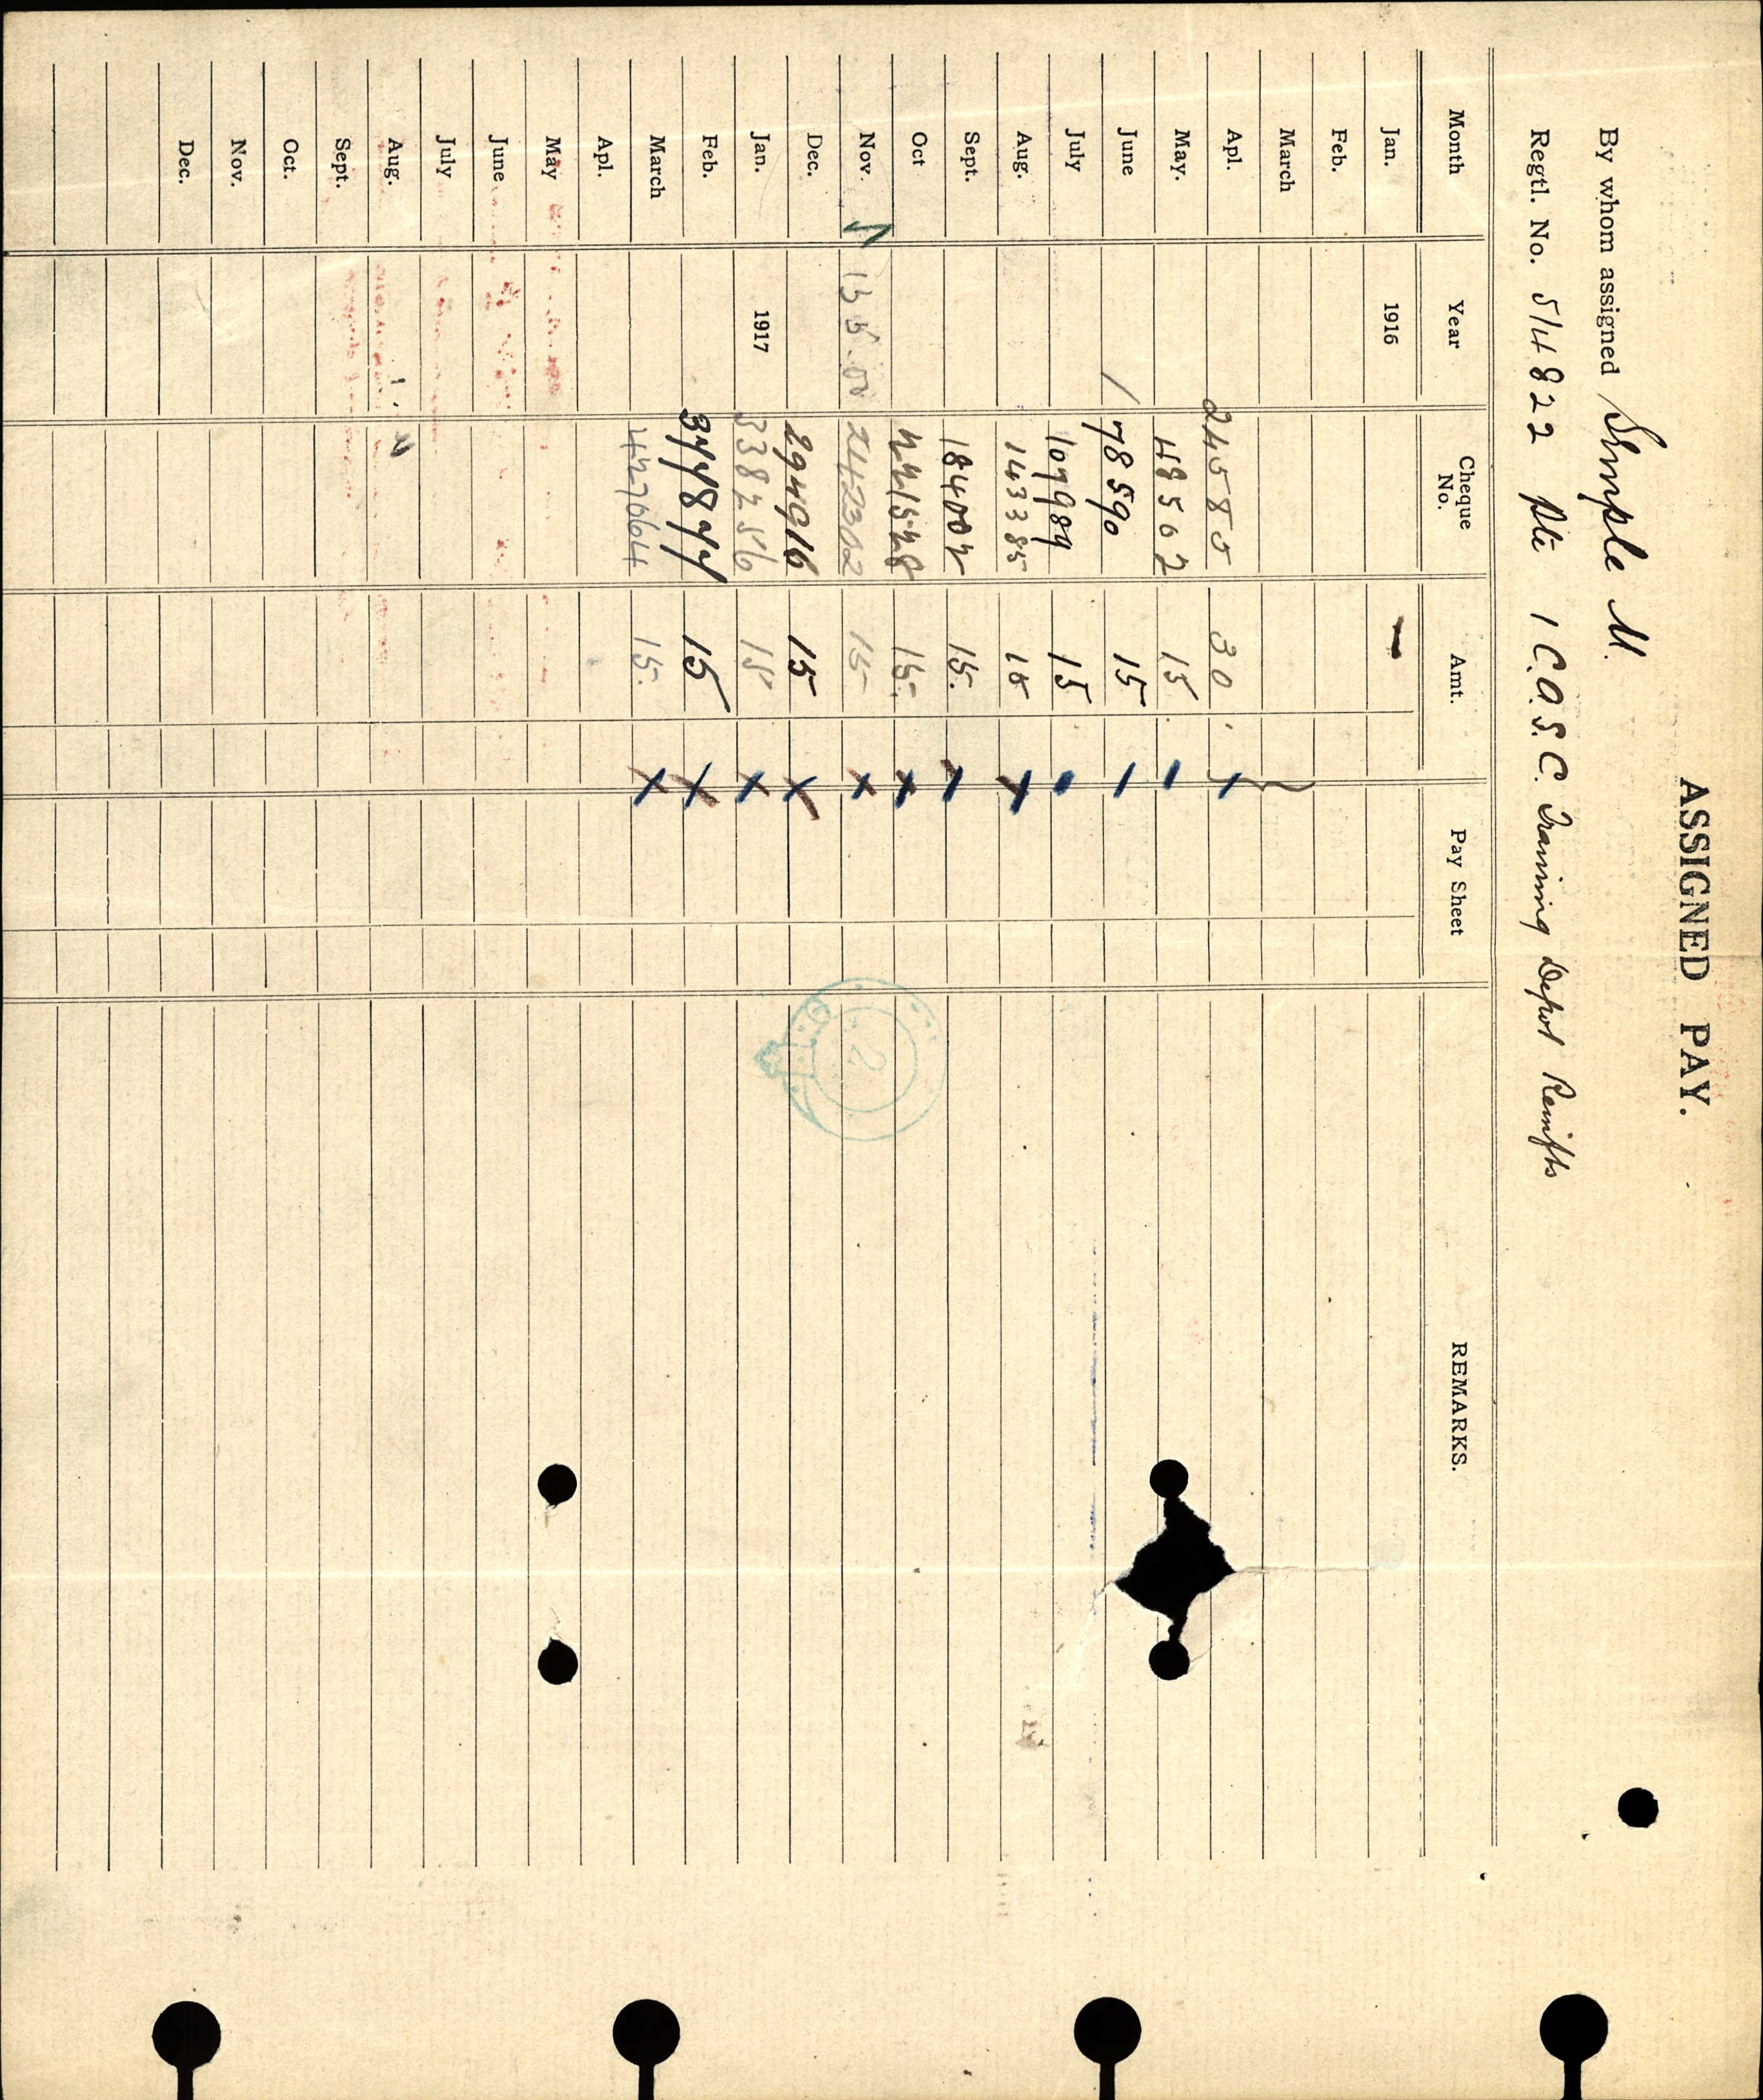 ASSIGNED PAY.
By whom assigned Shnple M.
Regtl. No. 5/4822 Pte 1 C.A.S.C. Training Depot Remfts
Month Year Cheque No. Amt. Pay Sheet REMARKS.
Jan. 1916
Feb.
March
Apl. 24580 30
May. 48502 15
June 78590 15
July 107989 15
Aug. 143385 15
Sept. 184002 15.
Oct 221528 15.
Nov. 242302 15
Dec. 294916 15
Jan. 1917 338256 15
Feb. 15
March 427064 15.
Apl.
May
June
July
Aug.
Sept.
Oct.
Nov.
Dec.
2